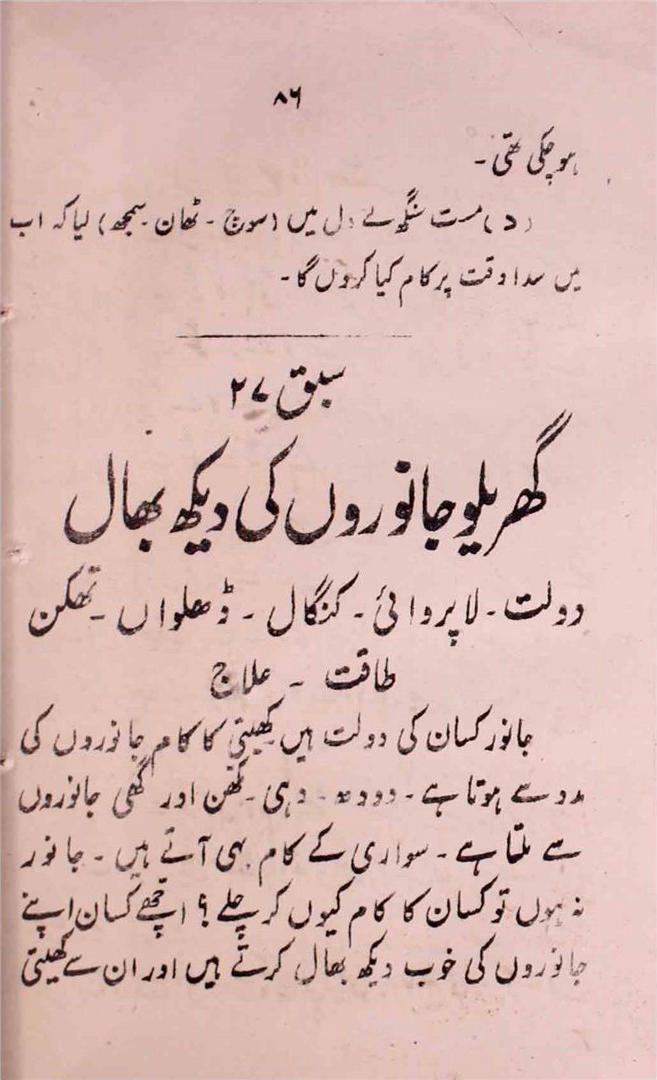 ۸۶
ہو چکی تھی۔
(د) مست سنگھ نے دل میں (سوچ ۔ ٹھان ۔ سمجھ) لیا کہ اب
میں سدا وقت پر کام کیا کروں گا۔
سبق ۲۷
گھریلو جانوروں کی دیکھ بھال
دولت ۔ لاپروائی ۔ کنگال ۔ ڈھلواں ۔ تھکن
طاقت ۔ علاج
جانور کسان کی دولت ہیں کھیتی کا کام جانوروں کی
مدد سے ہوتا ہے ۔ دودھ ۔ دہی ۔ مکھن اور گھی جانوروں
سے ملتا ہے ۔ سواری کے کام بھی آتے ہیں ۔ جانور
نہ ہوں تو کسان کا کام کیوں کر چلے ؟ اچھے کسان اپنے
جانوروں کی خوب دیکھ بھال کرتے ہیں اور ان سے کھیتی